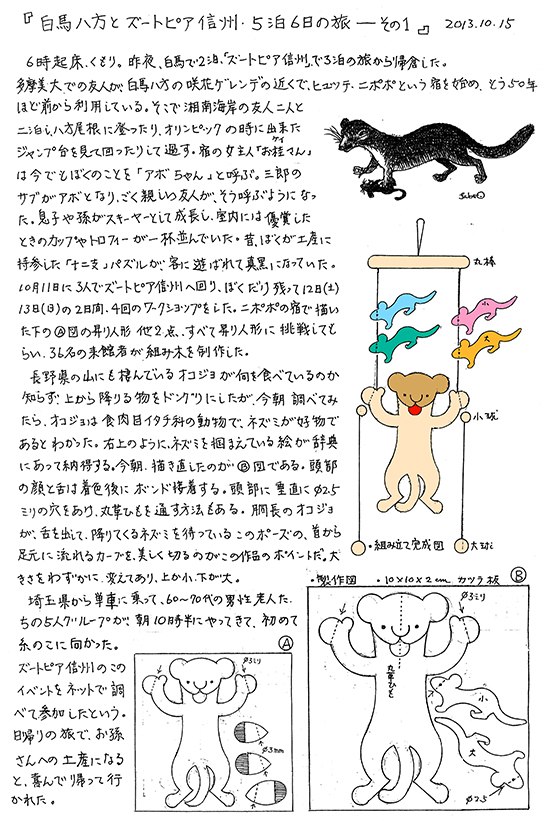 『白馬八方とズートピア信州・5泊6日の旅 ― その1』 2013.10.15
6時起床、くもり。昨夜、白馬で2泊、「ズートピア信州」で3泊の旅から帰宅した。
多摩美大での友人が、白馬八方の咲花ゲレンデの近くで、ヒュッテ・ニポポという宿を始め、とう50年
ほど前から利用している。そこで湘南海岸の友人二人と
二泊し、八方尾根に登ったり、オリンピックの時に出来た
ジャンプ台を見て回ったりして過す。宿の女主人「お桂さん」
ケイ
は今でもぼくのことを「アボちゃん」と呼ぶ。三郎の
サブがアボとなり、ごく親しい友人が、そう呼ぶようになっ
た。息子や孫がスキーヤーとして成長し、室内には優賞した
ときのカップやトロフィーが一杯並んでいた。昔、ぼくが土産に
持参した「十二支」パズルが、客に遊ばれて真黒になっていた。
10月11日に3人でズートピア信州へ回り、ぼくだけ残って12日(土)
13日(日)の2日間、4回のワークショップをした。ニポポの宿で描い
た下のⒶ図の昇り人形他2点、すべて昇り人形に挑戦しても
らい、36名の来館者が組み木を制作した。
長野県の山にも棲んでいるオコジョが何を食べているのか
知らず、上から降りる物をドングリにしたが、今朝調べてみ
たら、オコジョは食肉目イタチ科の動物で、ネズミが好物で
あるとわかった。右上のように、ネズミを掴まえている絵が辞典
にあって納得する。今朝、描き直したのがⒷ図である。頭部
の顔と舌は着色後にボンド接着する。頭部に垂直にφ2.5
ミリの穴をあけ、丸革ひもを通す方法もある。胴長のオコジョ
が、舌を出して、降りてくるネズミを待っているこのポーズの、首から
足元に流れるカーブを、美しく切るのがこの作品のポイントだ。大
きさをわずかに変えてあり、上が小、下が大。
埼玉県から単車に乗って、60〜70代の男性老人た
ちの5人グループが、朝10時半にやってきて、初めて
糸のこに向かった。
ズートピア信州のこの
イベントをネットで調
べて参加したという。
日帰りの旅で、お孫
さんへの土産になる
と、喜んで帰って行
かれた。
丸棒
小
大
小球
・組み立て完成図
大球
・製作図 ・10×10×2cm カツラ板 Ⓑ
φ3ミリ
丸革ひも
小
大
φ2.5
Ⓐ
φ3ミリ
φ3mm